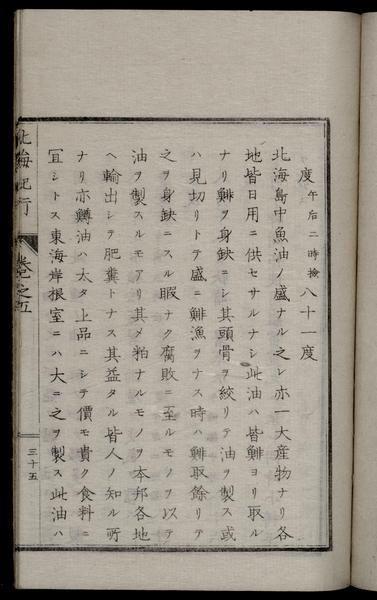 度午后二時撿八十一度
北海島中魚油ノ盛ナル之レ亦一大産物ナリ各
地皆日用ニ供セサルナシ此油ハ皆鯡ヨリ取ル
ナリ鯡ヲ身缺ニシ其頭骨ヲ絞リテ油ヲ製ス或
ハ見切リトテ盛ニ鯡漁ヲナス時ハ鯡取餘リテ
之ヲ身缺ニスル暇ナク腐敗ニ至ルモノヲ以テ
油ヲ製スルモアリ其〆粕ナルモノヲ本邦各地
ヘ輸出シテ肥糞トナス其益タル皆人ノ知ル所
ナリ亦鱒油ハ太タ上品ニシテ價モ貴ク食料ニ
冝シトス東海岸根室ニハ大ニ之ヲ製ス此油ハ
北海紀行
卷之五
三十五